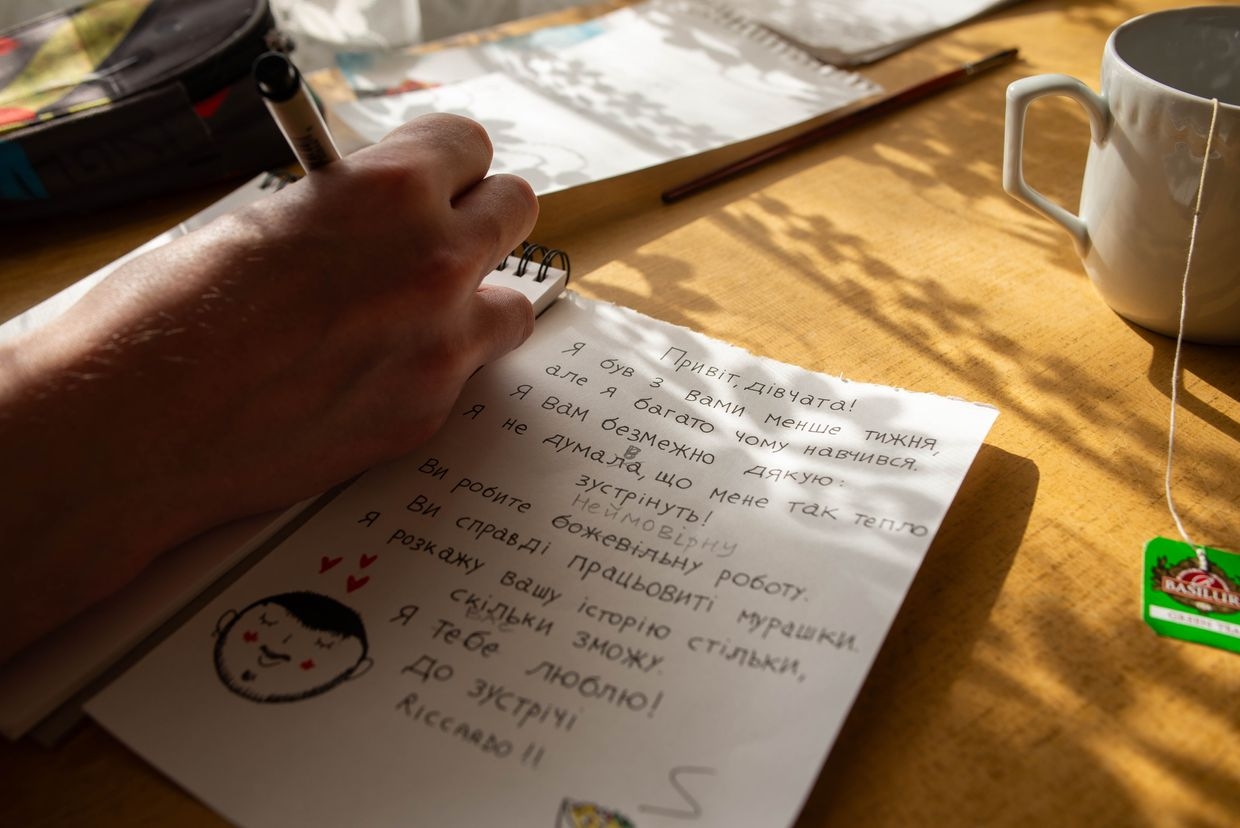 Привіт, дівчата!
Я був з вами менше тижня,
але я багато чому навчився.
Я вам безмежно дякую:
Я не думала, що мене так тепло
в
зустрінуть!
Неймовірну
Ви робите божевільну роботу.
Ви справді працьовиті мурашки.
Я розкажу вашу історію стільки,
скільки зможу.
Вас
Я тебе люблю!
До зустрічі
Riccardo !!
BASILUR